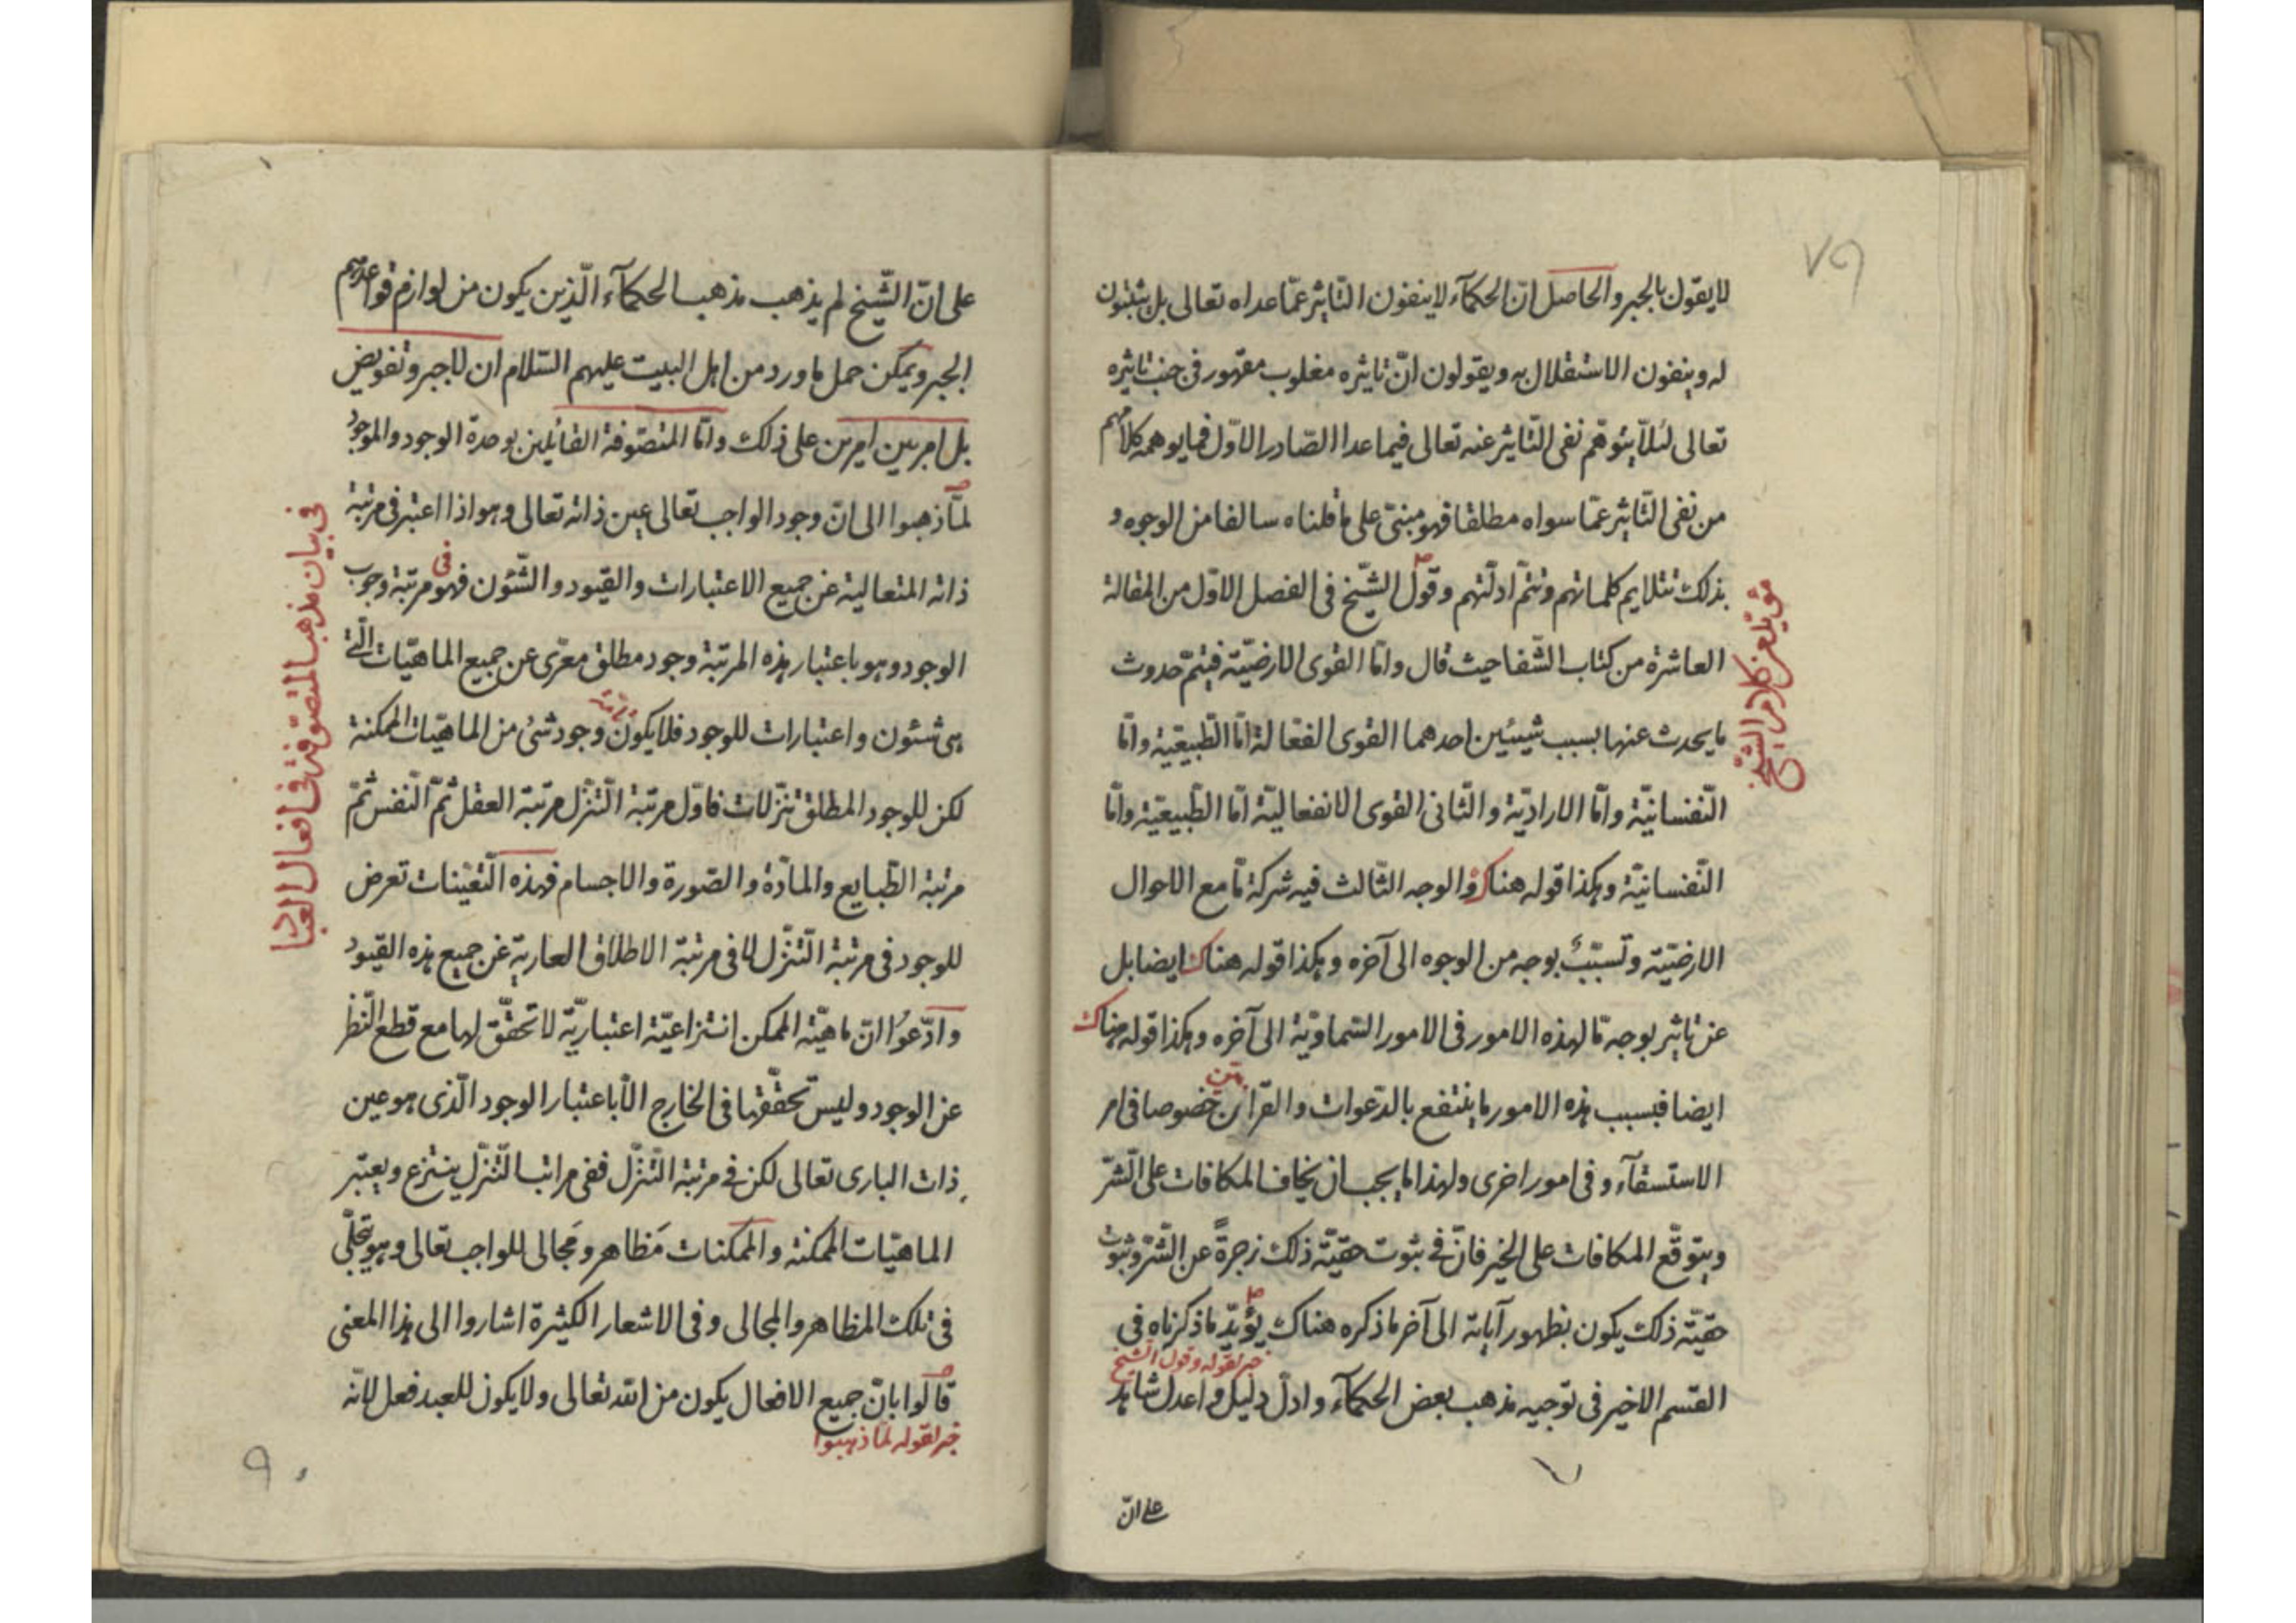 ٧٩
لا يقول بالجبر والحاصل انّ الحكمآء لا ينفون التّاثير عمّا عداه تعالى بل يثبتون
له وينفون الاستقلال به ويقولون انّ تاثيره مغلوب مقهور فى جنب تاثيره
تعالى لئلّا يتوهّم نفى التّاثير عنه تعالى فيما عدا الصّادر الاوّل فما يوهمه كلامهم
من نفى التّاثير عمّا سواه مطلقا فهو مبنىّ على ما قلناه سالفا من الوجوه و
بذلك تتلايم كلماتهم وتتمّ ادلّتهم وقول الشّيخ فى الفصل الاوّل من المقالة
العاشرة من كتاب الشّفا حيث قال وامّا القوى الارضيّة فيتمّ حدوث
ما يحدث عنها بسبب شيئين احدهما القوى الفعّالة امّا الطّبيعيّة وامّا
النّفسانيّة وامّا الاراديّة والثّانى القوى الانفعاليّة امّا الطّبيعيّة وامّا
النّفسانيّة وهكذا قوله هناك والوجه الثّالث فيه شركة مّا مع الاحوال
الارضيّة وتسبّب بوجه من الوجوه الى آخره وهكذا قوله هناك ايضا بل
عن تاثير بوجه مّا لهذه الامور فى الامور السّماويّة الى آخره وهكذا قوله هناك
ايضا فبسبب هذه الامور ما ينتفع بالدّعوات والقرابين خصوصا فى امر
الاستسقآء وفى امور اخرى ولهذا ما يجب ان يخاف المكافات على الشّرّ
ويتوقّع المكافات على الخير فانّ فى ثبوت حقيّة ذلك زجرةً عن الشّرّ وثبوت
حقيّة ذلك يكون بظهور آياته الى آخر ما ذكره هناك يؤيّد ما ذكرناه فى
خبر لقوله وقول الشيخ
القسم الاخير فى توجيه مذهب بعض الحكمآء وادلّ دليل واعدل شاهد
على انّ
مؤيد من كلام الشّيخ
على انّ الشّيخ لم يذهب مذهب الحكمآء الّذين يكون من لوازم قواعدهم
الجبر ويمكن حمل ما ورد من اهل البيت عليهم السّلام ان لا جبر وتفويض
بل امر بين امرين على ذلك وامّا المتصوّفة القائلين بوحدة الوجود والموجود
لمّا ذهبوا الى انّ وجود الواجب تعالى عين ذاته تعالى وهو اذا اعتبر فى مرتبة
ذاته المتعالية عن جميع الاعتبارات والقيود والشّئون فهو فى مرتبة وجوب
الوجود وهو باعتبار هذه المرتبة وجود مطلق معرّى عن جميع الماهيّات الّتى
هى شئون واعتبارات للوجود فلا يكون وجود شئ من الماهيّات الممكنة
لكن للوجود المطلق تنزّلات فاوّل مرتبة التّنزّل مرتبة العقل ثمّ النّفس ثمّ
مرتبة الطّبايع والمادّة والصّورة والاجسام فهذه التّعيّنات تعرض
للوجود فى مرتبة التّنزّل لا فى مرتبة الاطلاق العارية عن جميع هذه القيود
وادّعوا انّ ماهيّة الممكن انتزاعيّة اعتباريّة لا تحقّق لها مع قطع النّظر
عن الوجود وليس تحقّقها فى الخارج الّا باعتبار الوجود الّذى هو عين
ذات البارى تعالى لكن فى مرتبة التّنزّل ففى مراتب التّنزّل ينتزع ويعتبر
الماهيّات الممكنة والممكنات مَظاهر ومَجالى للواجب تعالى وهو تجلّى
فى تلك المظاهر والمجالى وفى الاشعار الكثيرة اشاروا الى هذا المعنى
قالوا بانّ جميع الافعال يكون من الله تعالى ولا يكون للعبد فعل لانّه
خبر لقوله لمّا ذهبوا
فى بيان مذهب المتصوّفة فى افعال العباد
٩٠